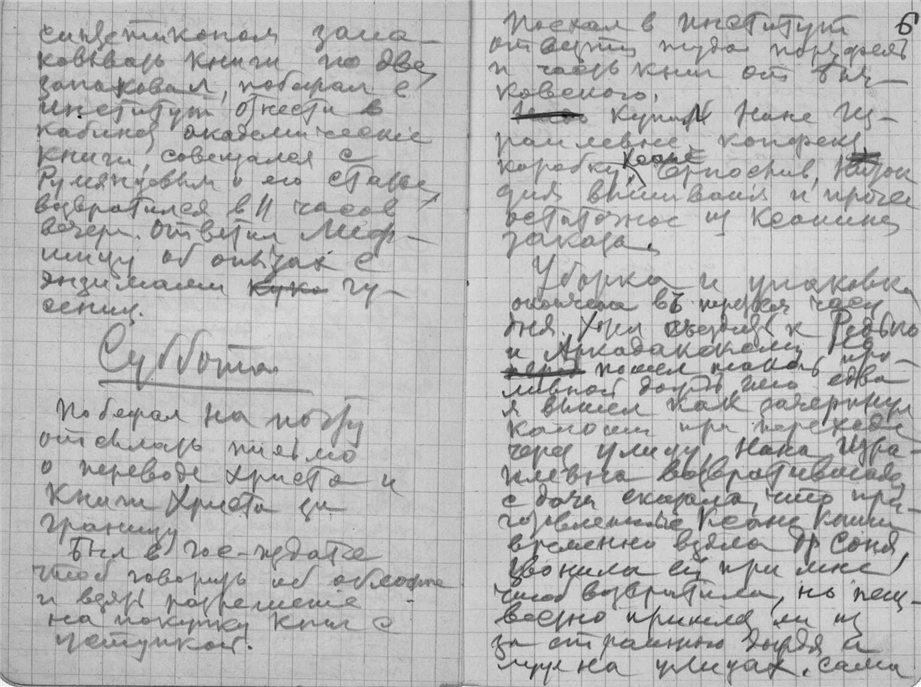 синдетиконом запа-
ковывать книги по две,
запаковал, побежал в
институт отнести в
кабинет академические
книги, совещался с
Румянцевым о его статье,
возвратился в 11 часов
вечера. Ответил
об опытах с
энзимами гу-
сениц.
Суббота
Побежал на почту
отсылать письмо
о переводе Христа и
книги Христа за
границу
Был в гос-издате
чтоб говорить об обложке
и взять разрешение
на покупку книг с
уступкой.
6
Поехал в институт
отвезти туда портфель
и часть книг от
ковского.
Купил Нане Из-
раилевне конфект
коробку,
для вышивания и прочее
остальное из Ксаниных
заказа.
Уборка и упаковка
окончена в 6 часу
дня. к Редько
и Аркадакскому
пошел такой про-
ливной дождь что едва
я вышел как зачерпнул
калоши при переходе
через улицу, Нана Изра-
илевна возвратившаяся
с дачи сказала, что при-
готовленные Ксане книги
временно взяла Соня,
звонила ей при мне,
чтоб возвратила, но неиз-
вестно пришлет ли из
за страшного дождя и
луж на улицах. Сама